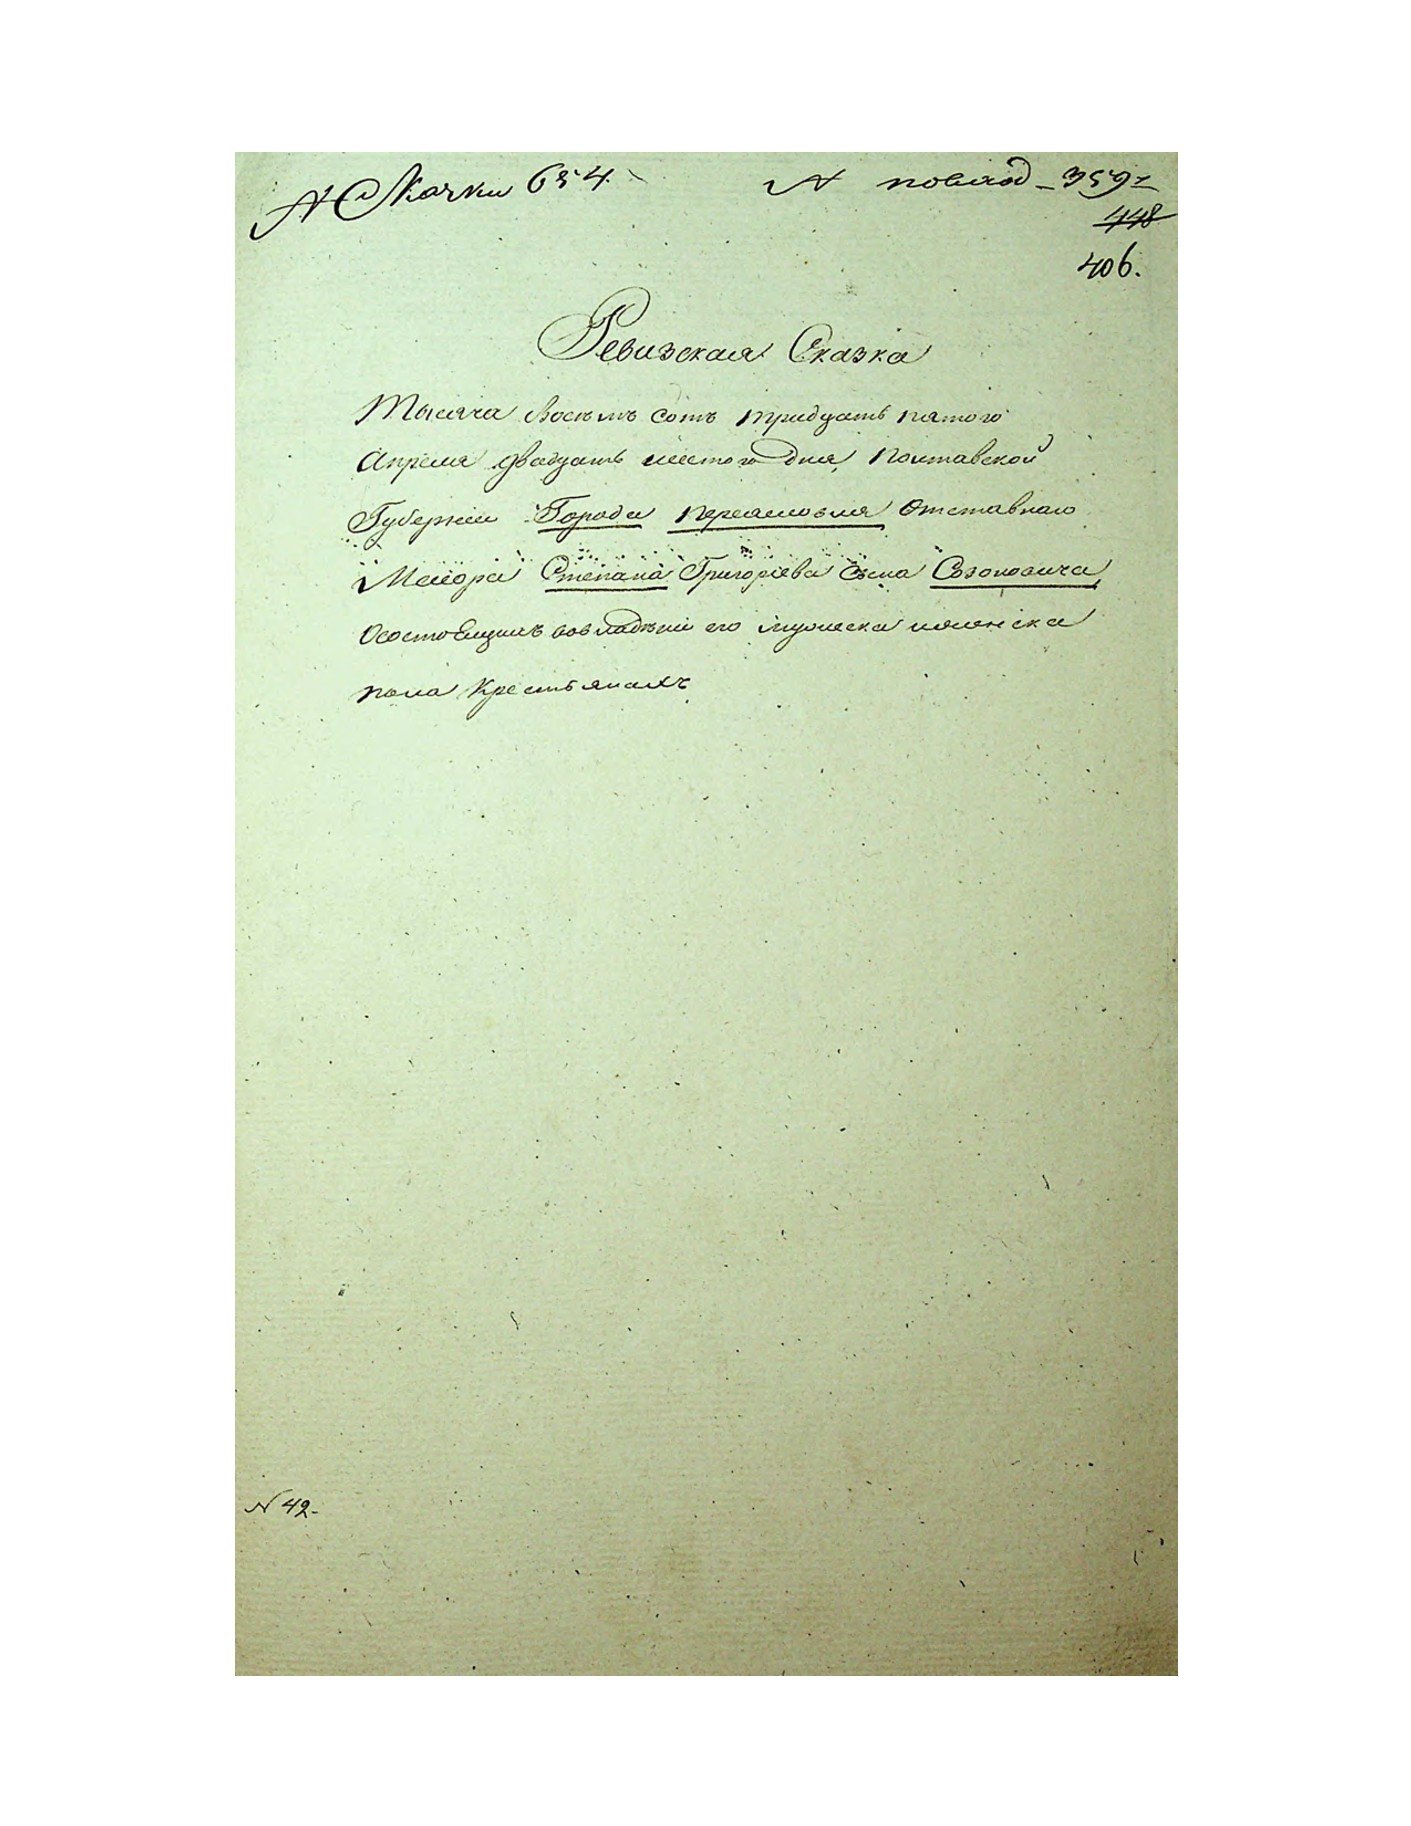 N Скачки 654.
N повляд - 3597
448
406.
Ревизская Сказка
Тысяча восемь сотъ тридцать пятого
Апреля двадцать шестого дня, Полтавской
Губернии Города Переяславля Отставнаго
Маиора Степана Григорьева Сына Созоновича
Осостоящихъ вовладѣнии его мужеска иженска
пола Крестьянахъ
N 42-